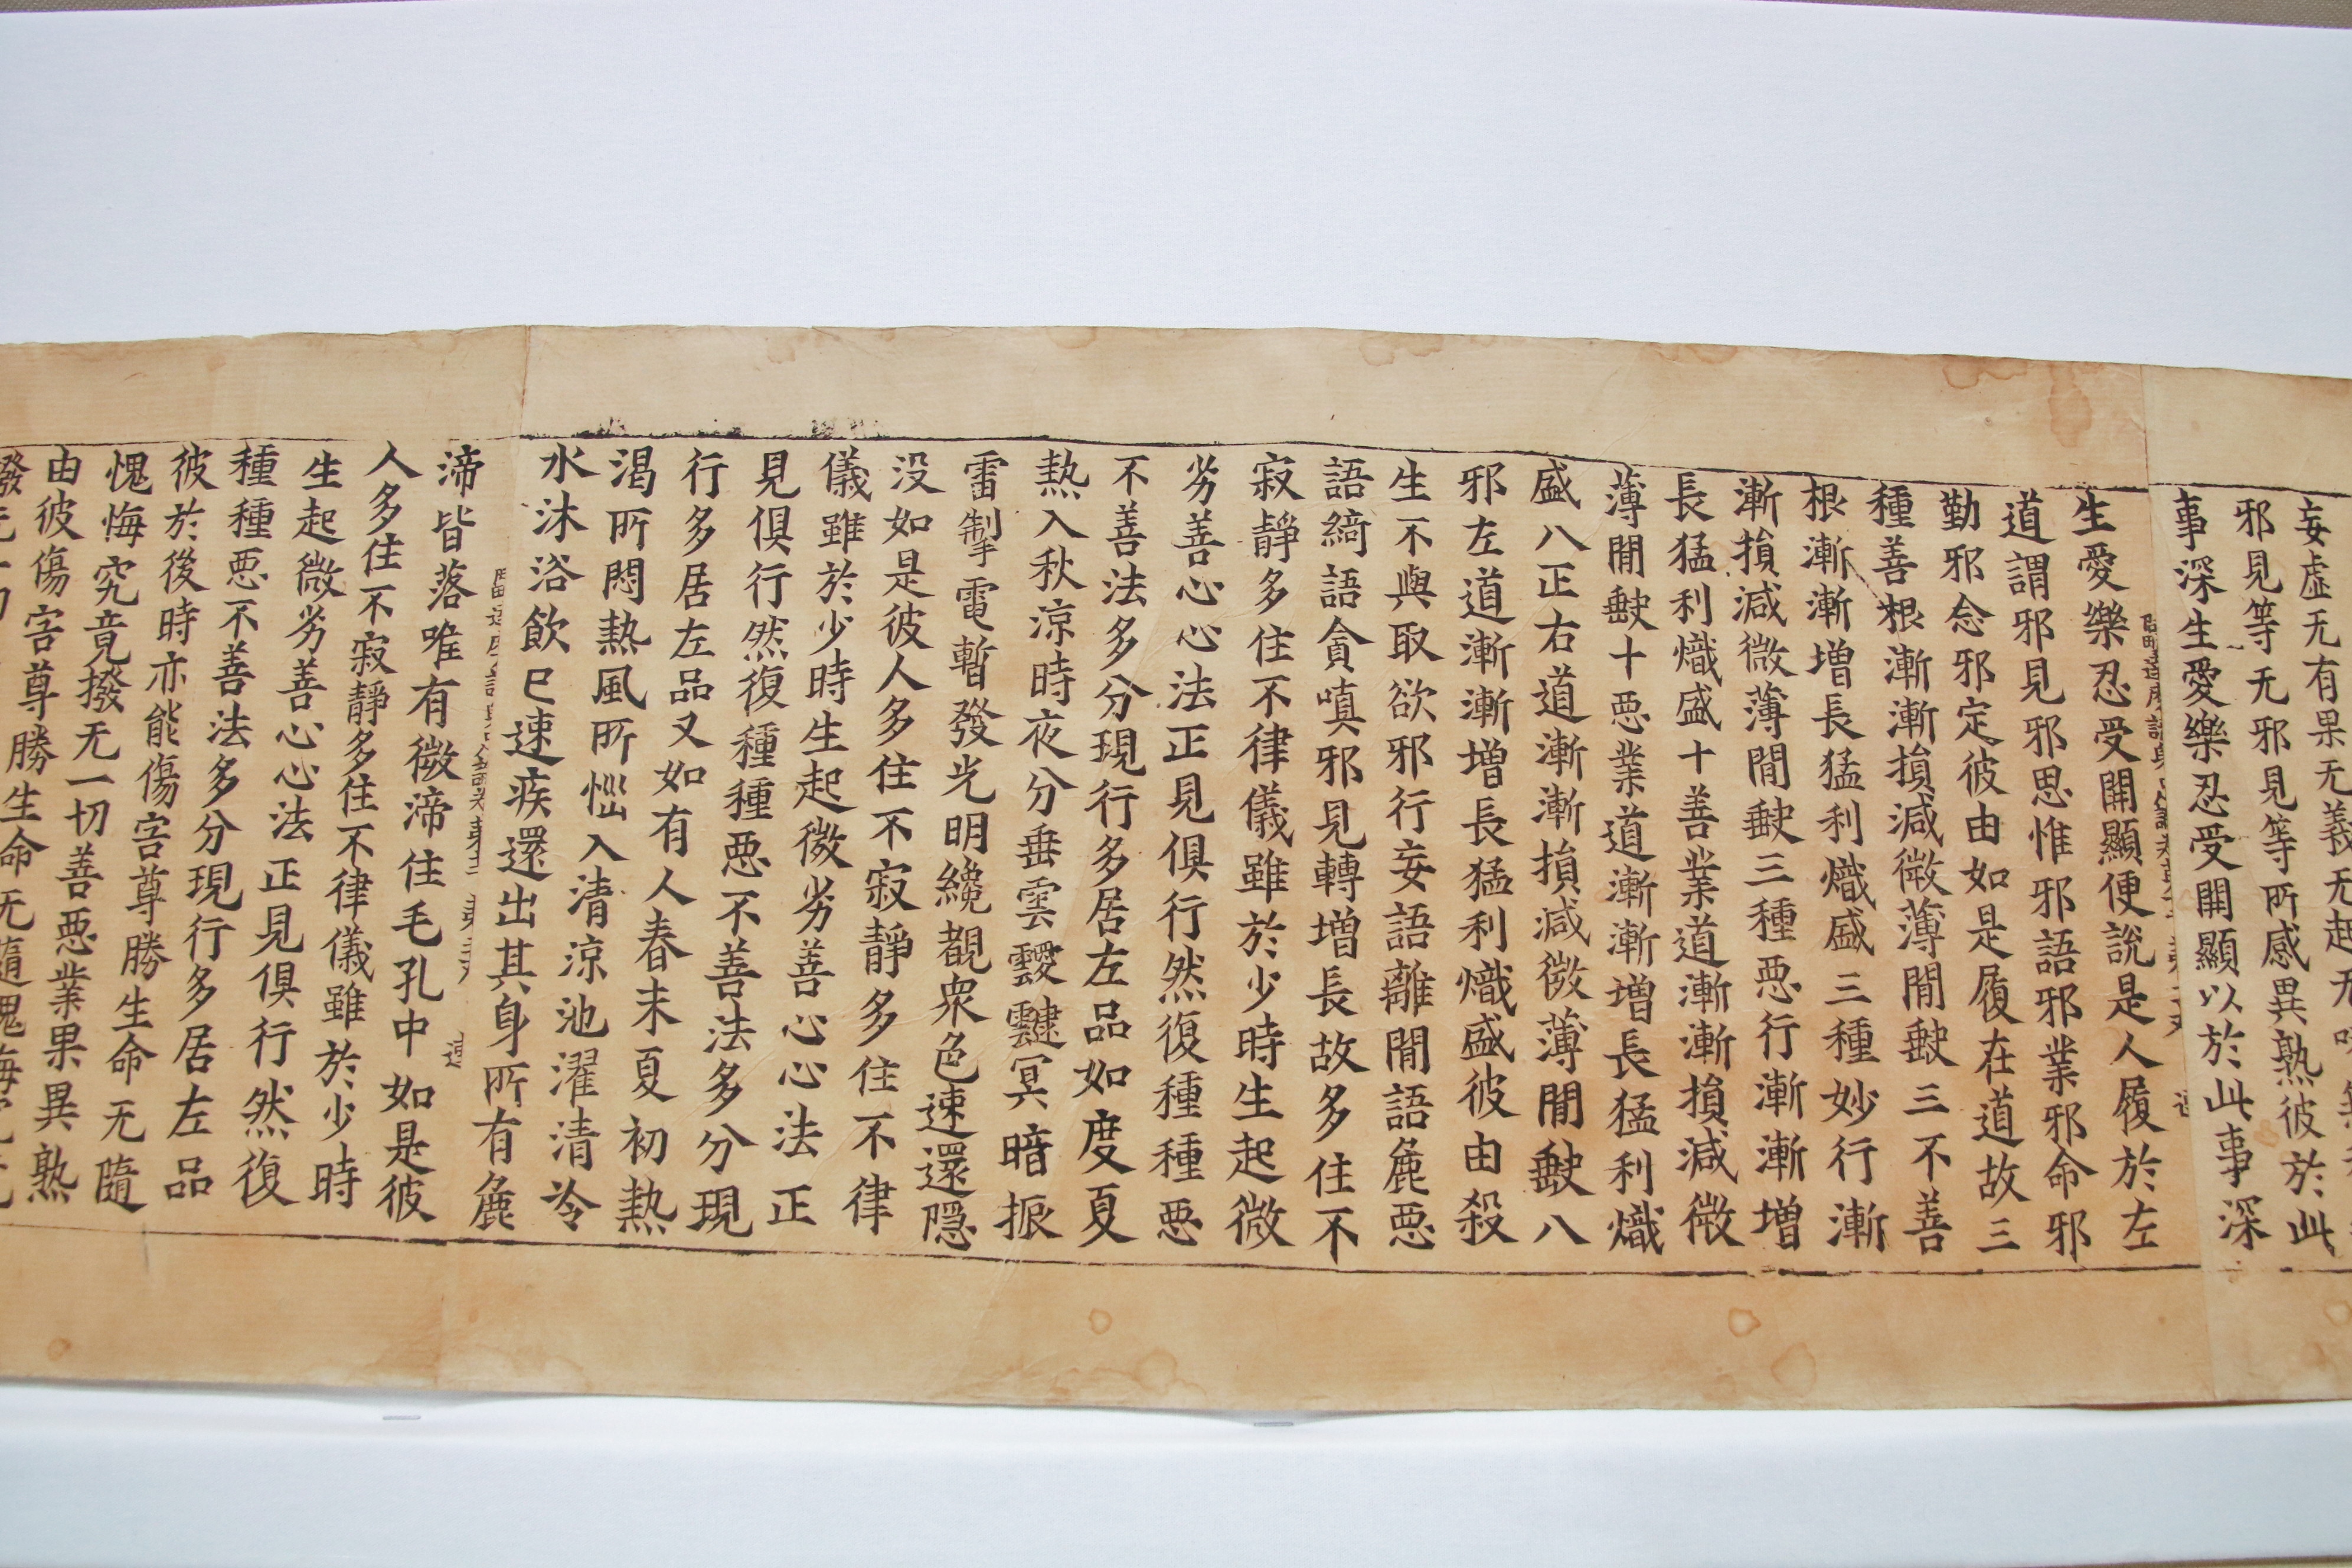 妄虛无有果无義无起无
邪見等无邪見等所感異熟彼於此
事深生愛樂忍受開顯以於此事深
阿毗達磨識身足論卷第 第 丈
生愛樂忍受開顯便說是人履於左
道謂邪見邪思惟邪語邪業邪命邪
勤邪念邪定彼由如是履在道故三
種善根漸漸損減微薄閒缺三不善
根漸漸增長猛利熾盛三種妙行漸
漸損減微薄閒缺三種惡行漸漸增
長猛利熾盛十善業道漸漸損減微
薄閒缺十惡業道漸漸增長猛利熾
盛八正右道漸漸損減微薄閒缺八
邪左道漸漸增長猛利熾盛彼由殺
生不與取欲邪行妄語離閒語麁惡
語綺語貪嗔邪見轉增長故多住不
寂靜多住不律儀雖於少時生起微
劣善心心法正見俱行然復種種惡
不善法多分現行多居左品如度夏
熱入秋涼時夜分垂雲靉靆冥暗振
雷掣電暫發光明纔覩衆色速還隱
没如是彼人多住不寂靜多住不律
儀雖於少時生起微劣善心心法正
見俱行然復種種惡不善法多分現
行多居左品又如有人春末夏初熱
渴所悶熱風所惱入清涼池濯清冷
水沐浴飲已速疾還出其身所有麁
渧皆落唯有微渧住毛孔中如是彼
人多住不寂靜多住不律儀雖於少時
生起微劣善心心法正見俱行然復
種種惡不善法多分現行多居左品
彼於後時亦能傷害尊勝生命无隨
愧悔究竟撥无一切善惡業果異熟
由彼傷害尊勝生命无隨愧悔究